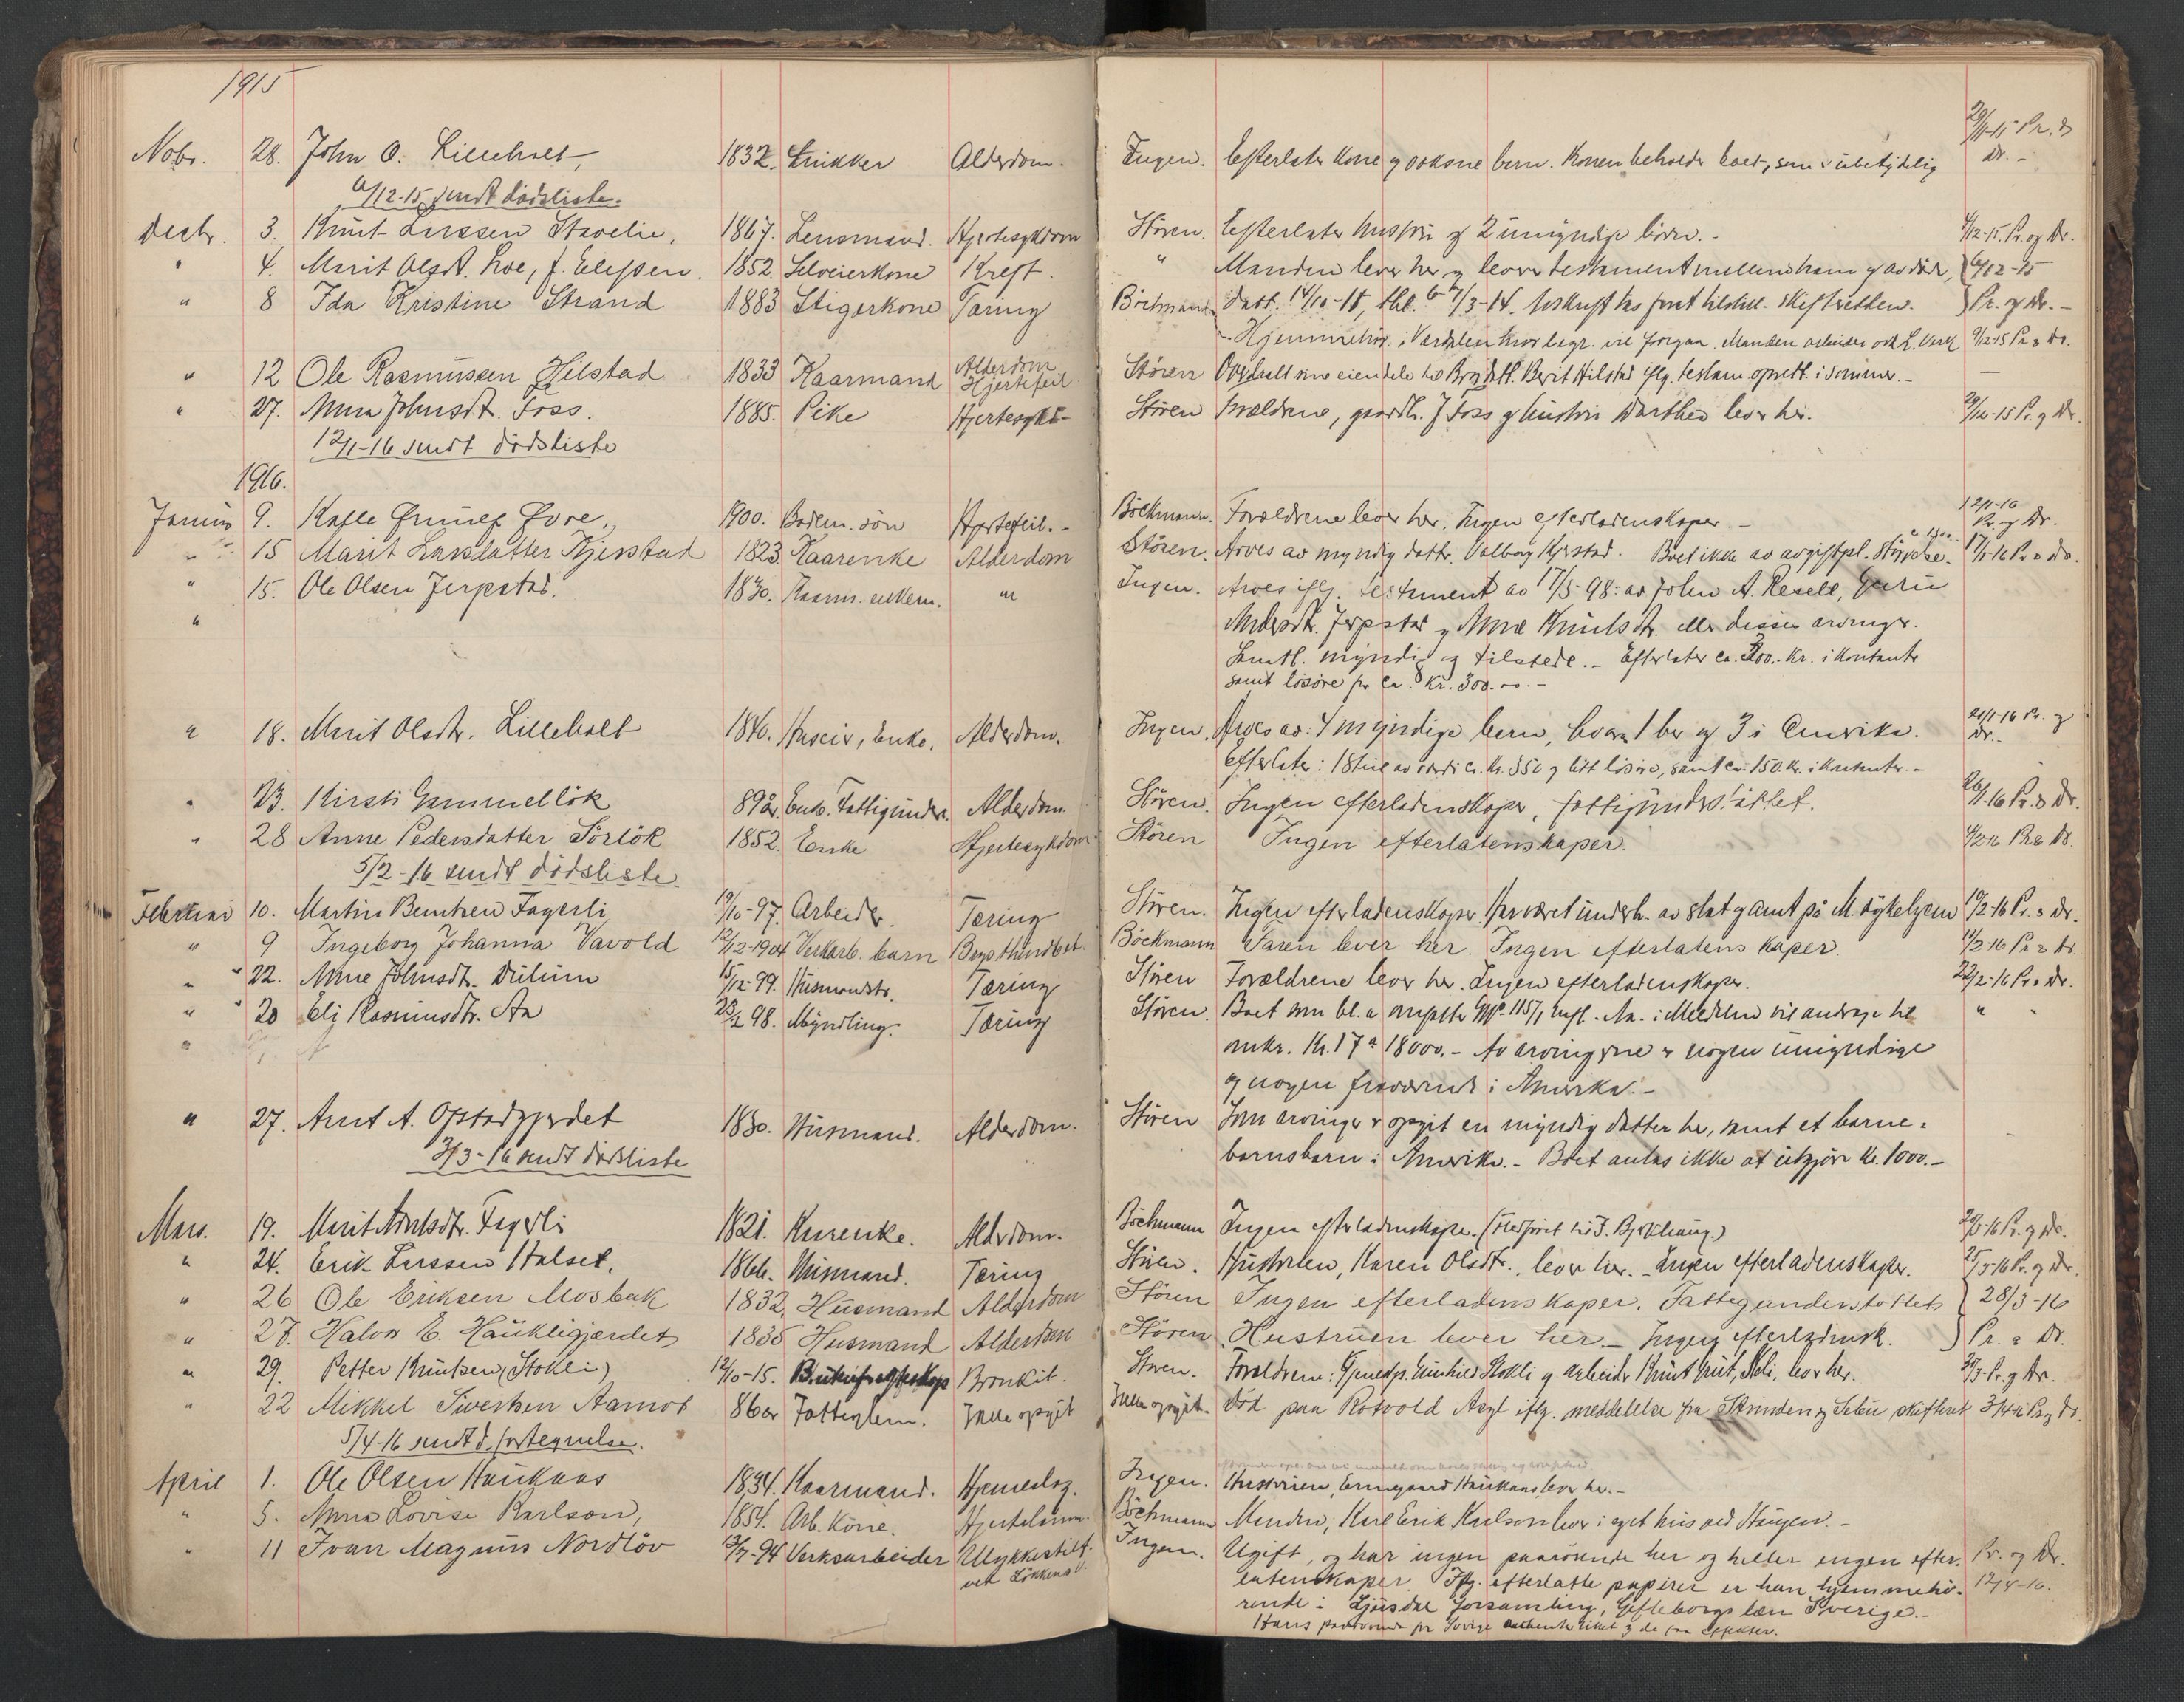 1915
Nobr. 28. John O. Lilleholt, 1832. Snikker Alderdom. Ingen. Efterlater kone og voksne bern. Konen beholder boet, som er ubetydelig 29/11-15 Pr. & Dr. -
6/12-15 sendt dödsliste.
Decbr. 3. Knut Larssen Stavelie, 1867. Lensmand. Hjertesykdom Stören. Efterlater hustru og 2 umyndige börn. - 4/12-15. Pr. og Dr.
" 4. Marit Olsdt. Hoe, f. Elefsen. 1852. Selveierkone Kreft. " Manden lever her og lever testament mellem ham og avdöde, 6/12-15
" 8 Ida Kristine Strand 1883 Stigerkone Tæring Böckmann dat. 14/10-15, tbl. 6-7/3-14. Utskrift tas først tilstill. skifteretten. Pr. og Dr. -
- Hjemmehör. i Værdalen hvor begr. vil foregaa. Manden arbeider ved L. Verk 9/12-15 Pr. & Dr.
" 12 Ole Rasmussen Hilstad 1833 Kaarmand Alderdom Hjertefeil Stören Overdratt sine eiendele til Brordatt. Berit Hilstad iflg. testam. oprett. i sommer. - —
" 27. Anna Johnsdt. Foss. 1885. Pike Hjertesykd. Stören Forældrene, gaardbr. J. Foss og hustru Dorthea lever her. 29/12-15 Pr. og Dr.
12/1-16 sendt dödsliste
1916.
Januar 9. Kafle Øvre, 1900. sön Hjertefeil. - Böckmann. Forældrene lever her. Ingen efterladenskaper. - 12/1-16 Pr. og Dr.
" 15 Marit Larsdatter Kjerstad 1823 Kaarenke Alderdom Stören. Arves av myndig dattr. Valborg Kjerstad. Boet ikke av avgiftspl. störrelse. 17/1-16 Pr. & Dr.
" 15. Ole Olsen Jerpstad. 1830. Kaarm. enkem. " Ingen. Arves iflg. testament av 17/5-98 av John A. Resell, Guru
" Andersdt. Jerpstad og Anne Knutsdtr. eller disses arvinger.
Samtl. myndig og tilstede. - Efterlater ca. 300.- Kr. i kontante
samt lösöre for ca. Kr. 300.00. -
" 18. Marit Olsdtr. Lilleholt 1840. Huseier, Enke. Alderdom. Ingen. Arves av: 4 myndige bern, hvorav 1 her og 3 i Amerika. 20/1-16 Pr. og Dr. -
Efterlater: 1 Stue av værdi ca. Kr. 350 og litt lösöre, samt ca. 150 Kr. i kontanter. -
" 23. Kirsti Gammellök 89 år. Enke. Fattigunders. Alderdom. Stören. Ingen efterladenskaper, fattigunderstöttet. 26/1-16 Pr. & Dr.
" 28 Anne Pedersdatter Sörlök 1852. Enke Hjertesykdom Stören Ingen efterlatenskaper. 4/2 16 Pr & Dr.
5/2-16 sendt dödsliste
Februar 10. Martin Berntsen Fagerli 19/10-97. Arbeider. Tæring Stören. Ingen efterladenskaper. Har været underh. av stat og amt på M. sykehjem 10/2-16 Pr. & Dr.
" 9 Ingeborg Johanna Vavold 12/12-1904 Verksarb. barn Böckmann Faren lever her. Ingen efterlatenskaper. 11/2-16 Pr & Dr.
" 22. Anne Johnsdt. Dulum 15/12-99. Husmandsdtr. Tæring Stören Forældrene lever her. Ingen efterladenskaper. 22/2-16 Pr. & Dr.
" 20 Eli Rasmusdtr. Aa 23/2 98. Myndling. Tæring Stören. Boet som bl. a. omfatter 115/1 Aa i Meldalen vil andrage til " "
" omkr. Kr. 17 a 18000. - Av arvingerne er nogen umyndige
og nogen fraværende i Amerika. -
" 27. Arnt A. Opstadgjerdet 1830. Husmand. Alderdom. Stören Som arvinger er opgit en myndig datter her, samt et barne-
3/3-16 sendt dödsliste barnsbarn i Amerika. - Boet antas ikke at utgjöre Kr. 1000. -
Mars. 19. Marit Arntsdtr. Fagerli 1821. Kaarenke. Alderdom. Böckmann Ingen efterladenskaper. 20/3-16 Pr. og Dr.
" 24. Erik Larssen Halset. 1866. Husmand. Tæring Stören. Hustruen, Karen Olsdtr., lever her. - Ingen efterladenskaper. 25/3-16 Pr. og Dr.
" 26 Ole Eriksen Mosbak 1832, Husmand Alderdom Stören Ingen efterladenskaper. Fattigunderstottet 28/3-16
" 27. Halvor E. Haukligjærdet 1835 Husmand Alderdom Stören Hustruen lever her. - Ingen efterladensk. Pr. & Dr.
" 29. Petter Knutsen (Stokli) 12/10-15. Bronkit. Stören. Forældrene: Gunhild Stokli og arbeider Knut lever her. 30/3-Pr. og Dr.
" 22 Mikkel Sivertsen Aamot 86 år Fattiglem. Ikke opgit Ikke opgit. Död paa Rotvold Asyl iflg. meddelelse fra Strinden og Selbu skifteret 3/4-16 Pr og Dr.
5/4-16 sendt d. fortegnelse.
April 1. Ole Olsen Haukaas 1834. Kaarmand. Hjerneslag. Ingen. Hustruen, Ermegaard Haukaas, lever her. -
" 5. Anna Lovise Karlson, 1854. Arb. kone. Böckmann Manden, Karl Erik Karlson lever i eget hus ved Haugen. -
" 11 Ivar Magnus Nordlöv 3/7-94 Verksarbeider Ulykkestilf. ved Lökkens V. Ingen. Ugift, og har ingen paarörende her og heller ingen efter- Pr. og Dr.
latenskaper. Iflg. efterlatte papirer er han hjemmehö- 12/4-16.
rende i Ljusdal forsamling, Gefleborgs län Sverige. -
Hans paarörende fra Sverige liket og de faa effekter.